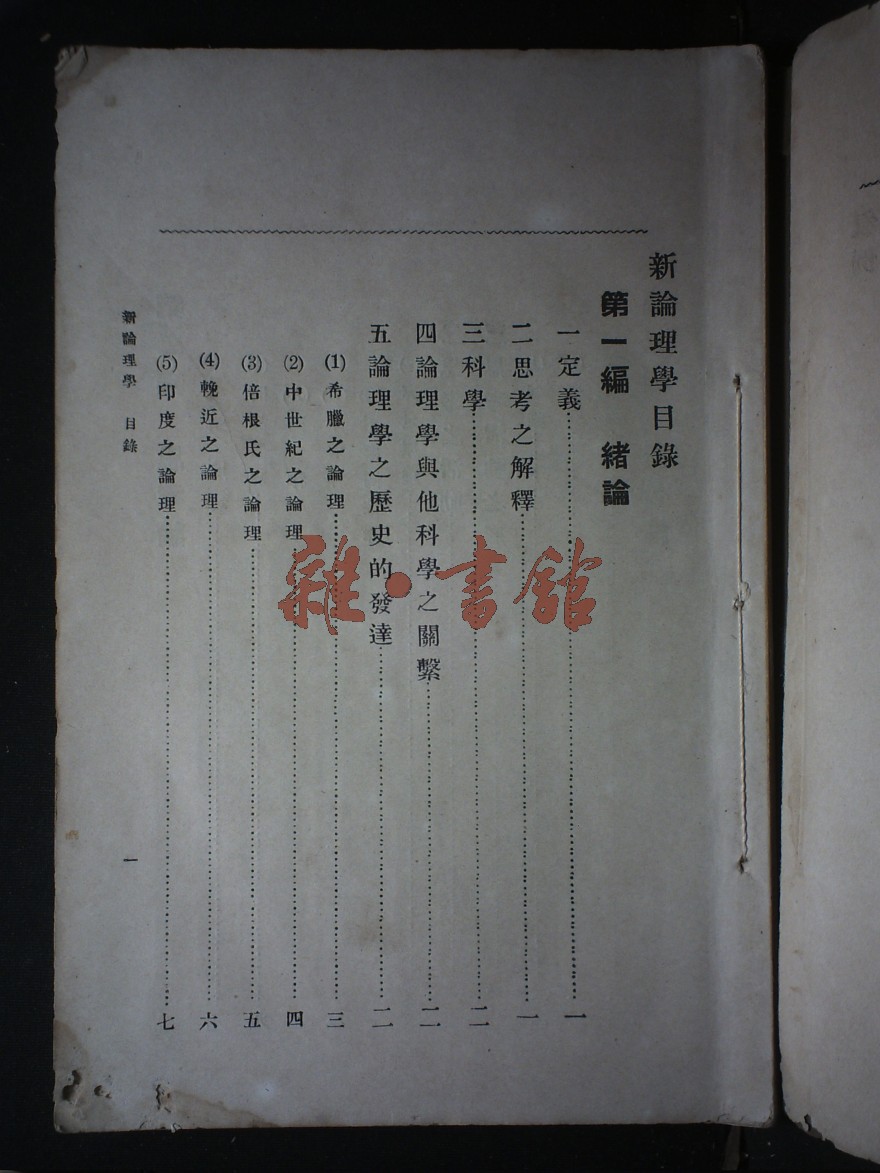 新論理學目錄
第一編　緒論
一定義……一
二思考之解釋……一
三科學……二
四論理學與他科學之關繫……二
五論理學之歷史的發達……二
(1)希臘之論理……三
(2)中世紀之論理……四
(3)倍根氏之論理……五
(4)輓近之論理……六
(5)印度之論理……七
新論理學　目錄　一
雜·書館